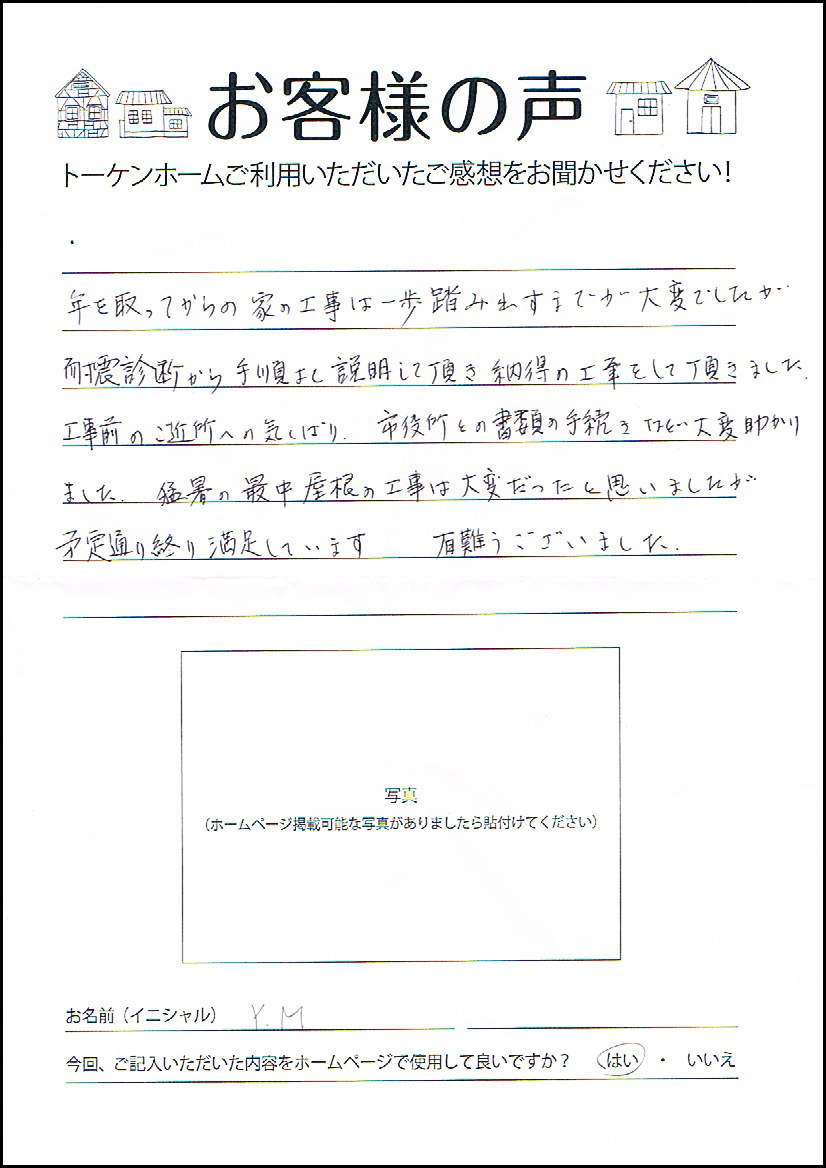 お客様の声
トーケンホームご利用いただいたご感想をお聞かせください！
年を取ってからの家の工事は一歩踏み出すまでが大変でしたが
耐震診断から手順よく説明して頂き納得の工事をして頂きました。
工事前のご近所への気くばり、市役所との書類の手続きなど大変助かり
ました。猛暑の最中屋根の工事は大変だったと思いましたが
予定通り終り満足しています　有難うございました。
写真
（ホームページ掲載可能な写真がありましたら貼付けてください）
お名前（イニシャル）　Y.M
今回、ご記入いただいた内容をホームページで使用して良いですか？　はい・いいえ